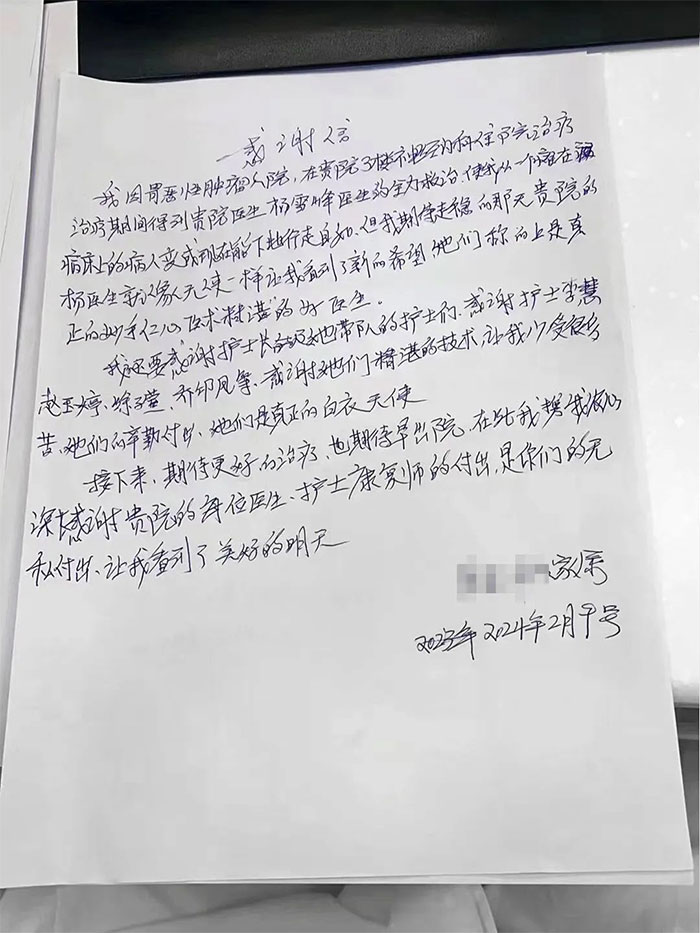 感谢信
我因胃恶性肿瘤入院，在贵院3楼神经内科住院治疗
治疗期间得到贵院医生杨雪峰医生的全力救治，使我从一个瘫在
病床上的病人变成现在能下地行走自如，但我期待走稳的那天贵院的
杨医生就像家人天使一样让我看到了新的希望他们称的上是真
正的妙手仁心医术精湛的好医生。
我还要感谢护士长 她带队的护士们，感谢护士李慧
赵玉婷、徐 莹、 等，感谢她们精湛的技术，让我少受很多
苦、她们的辛勤付出、她们是真正的白衣天使
接下来，期待更好的治疗，也期待早出院，在此我 我
深感谢贵院的每位医生、护士康复师的付出，是你们的无
私付出、让我看到了美好的明天
家属
2023年2024年2月 号